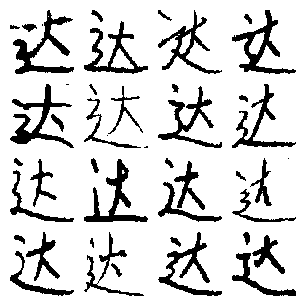 达达达达
达达达达
达达达达
达达达达